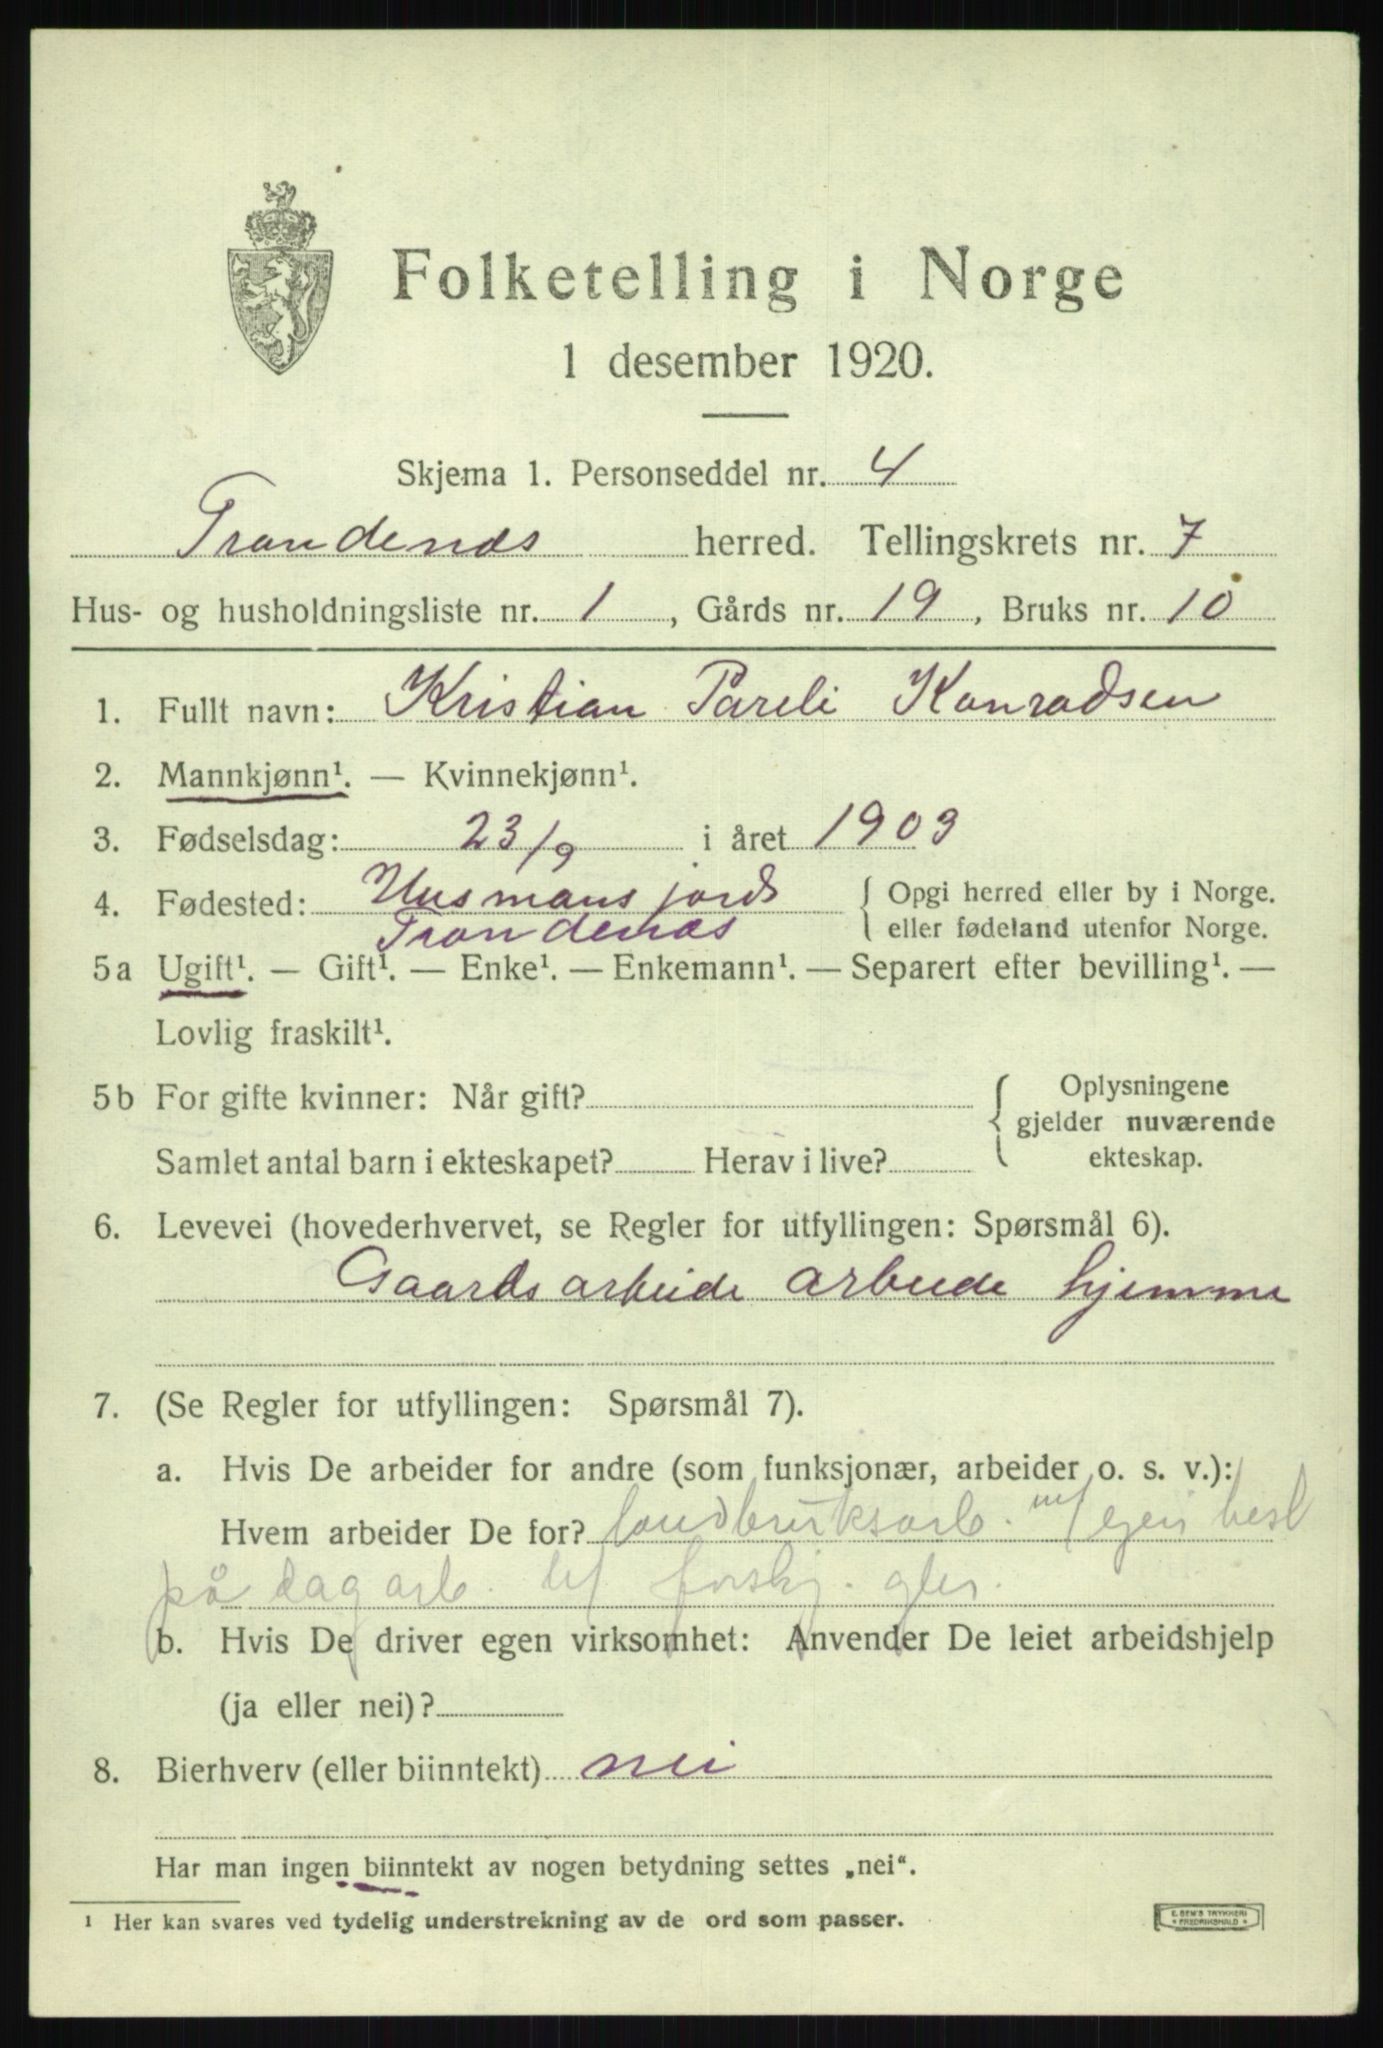 Folketelling i Norge
1 desember 1920.
Skjema 1. Personseddel nr. 4
Trondenæs herred. Tellingskrets nr. 7
Hus- og husholdningsliste nr. 1, Gårds nr. 19, Bruks nr. 10
1. Fullt navn: Kristian Pareli Konradsen
2. Mannkjønn¹. — Kvinnekjønn¹.
3. Fødselsdag: 23/9 i året 1903
4. Fødested: Husmansjord { Opgi herred eller by i Norge.
Trondenæs eller fødeland utenfor Norge.
5a Ugift¹. — Gift¹. — Enke¹. — Enkemann¹. — Separert efter bevilling¹. —
Lovlig fraskilt¹.
5b For gifte kvinner: Når gift? { Oplysningene
gjelder nuværende
Samlet antal barn i ekteskapet? Herav i live? ekteskap.
6. Levevei (hovederhvervet, se Regler for utfyllingen: Spørsmål 6).
Gaardsarbeide arbeide hjemme
7. (Se Regler for utfyllingen: Spørsmål 7).
a. Hvis De arbeider for andre (som funksjonær, arbeider o. s. v.):
Hvem arbeider De for? landbruksarb. m/ egen
på dagarb. forskj.
b. Hvis De driver egen virksomhet: Anvender De leiet arbeidshjelp
(ja eller nei)?
8. Bierhverv (eller biinntekt) nei
Har man ingen biinntekt av nogen betydning settes „nei“.
¹ Her kan svares ved tydelig understrekning av de ord som passer.
E. SEM'S TRYKKERI
FREDRIKSHALD